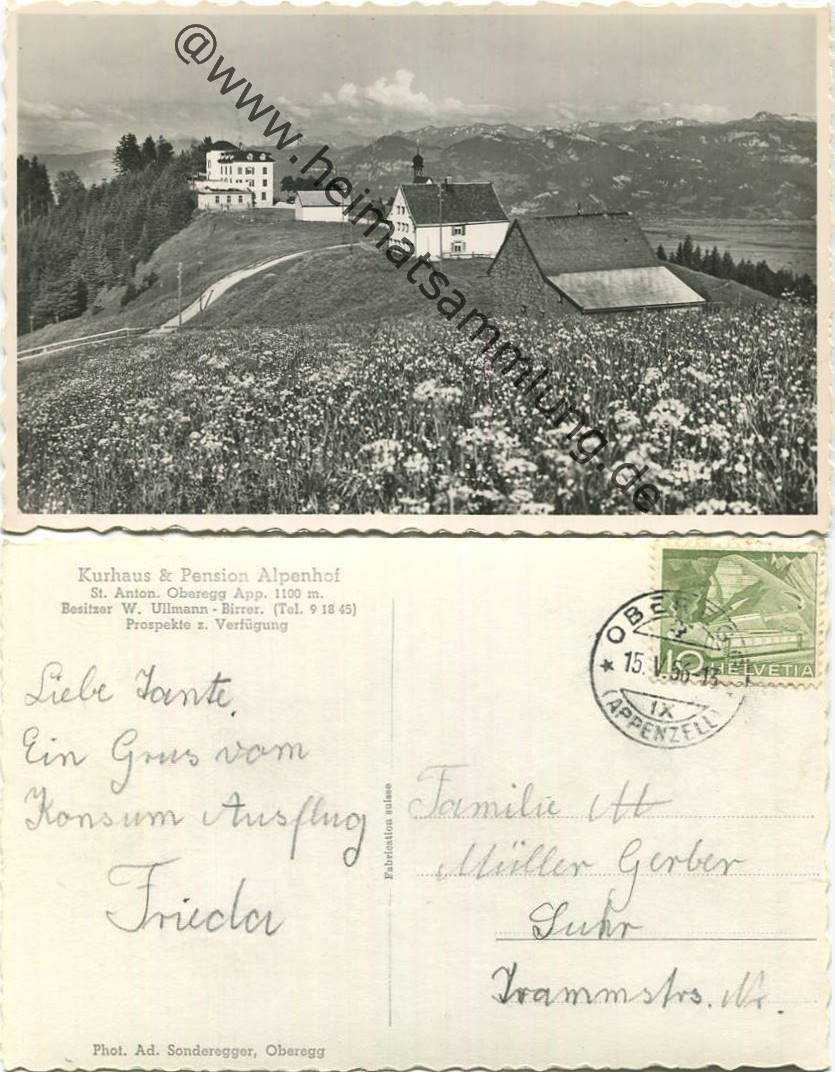 @www.heimatsammlung.de
Kurhaus & Pension Alpenhof
St. Anton. Oberegg App. 1100 m.
Besitzer W. Ullmann - Birrer. (Tel. 9 18 45)
Prospekte z. Verfügung
Liebe Tante,
Ein Grus vom
Konsum Ausflug
Frieda
Phot. Ad. Sonderegger, Oberegg
Fabrication suisse
10 HELVETIA
15. V. 56-13
IX
(APPENZELL)
Familie
Müller Gerber
Suhr
Trammstrs. Nr.